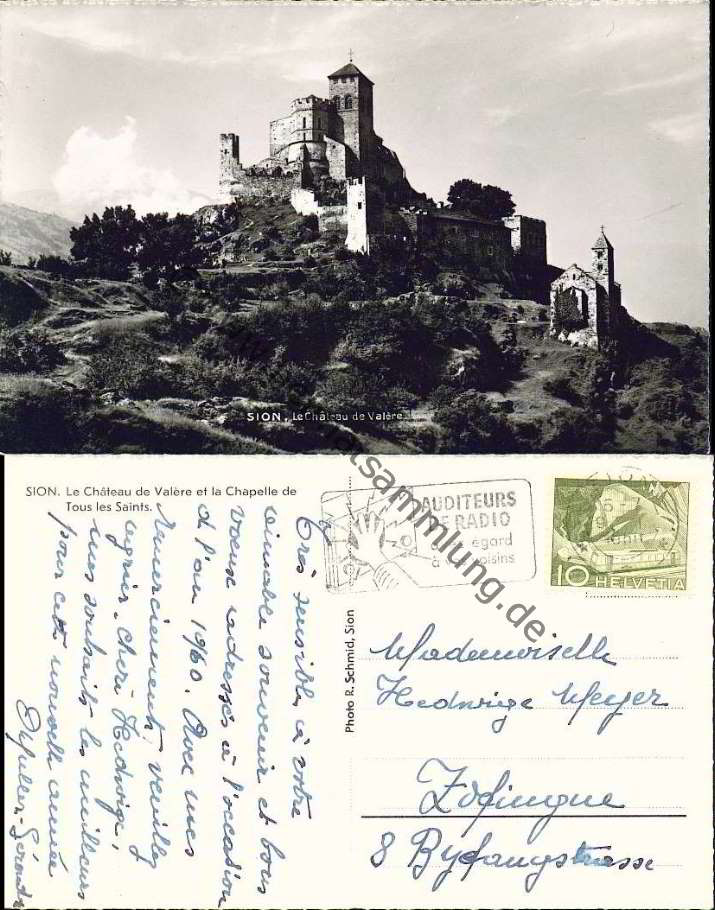 SION. Le Château de Valère
SION. Le Château de Valère et la Chapelle de
Tous les Saints.
AUDITEURS
DE RADIO
égard
voisins
10 HELVETIA
Photo R. Schmid, Sion
Mademoiselle
Hedwige Meyer
Zofingue
8 Byfangstrasse
Très sensible à votre
aimable souvenir et bons
voeux adressés à l'occasion
de l'an 1960. Avec mes
remerciements, veuillez
agréer, chère Hedwige,
mes souhaits les meilleurs
pour cette nouvelle année
ansichtskartensammlung.de